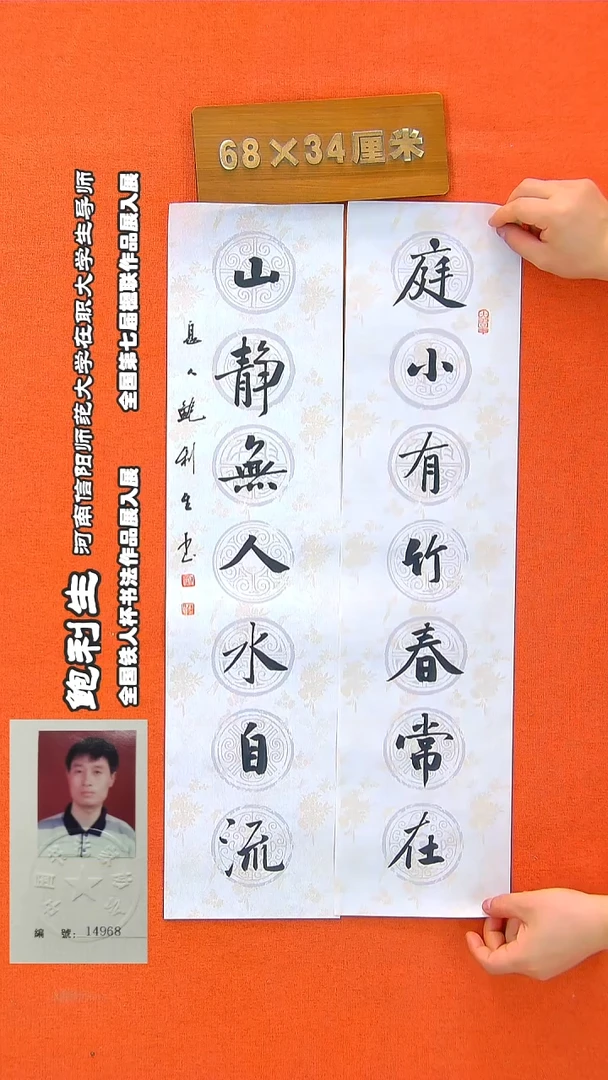 68×34厘米
庭小有竹春常在
山静無人水自流
息人鲍利生书
鲍利生 河南信阳师范大学在职大学生导师
全国铁人杯书法作品展入展 全国第七届楹联作品展入展
编 號：14968